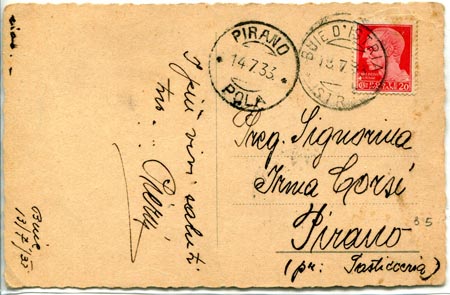 PIRANO
14.7.33
POLA
BUIE D'ISTRIA
13.7.33
20
I più vivi saluti
Buie
13/7/33
Preg. Signorina
Irma Corsi
Pirano
(pr: Pasticceria)